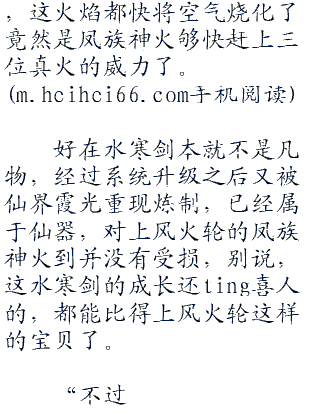 ，这火焰都快将空气烧化了
竟然是凤族神火够快赶上三
位真火的威力了。
(m.hcihci66.com手机阅读)
好在水寒剑本就不是凡
物，经过系统升级之后又被
仙界霞光重现炼制，已经属
于仙器，对上风火轮的凤族
神火到并没有受损，别说，
这水寒剑的成长还ting喜人
的，都能比得上风火轮这样
的宝贝了。
“不过